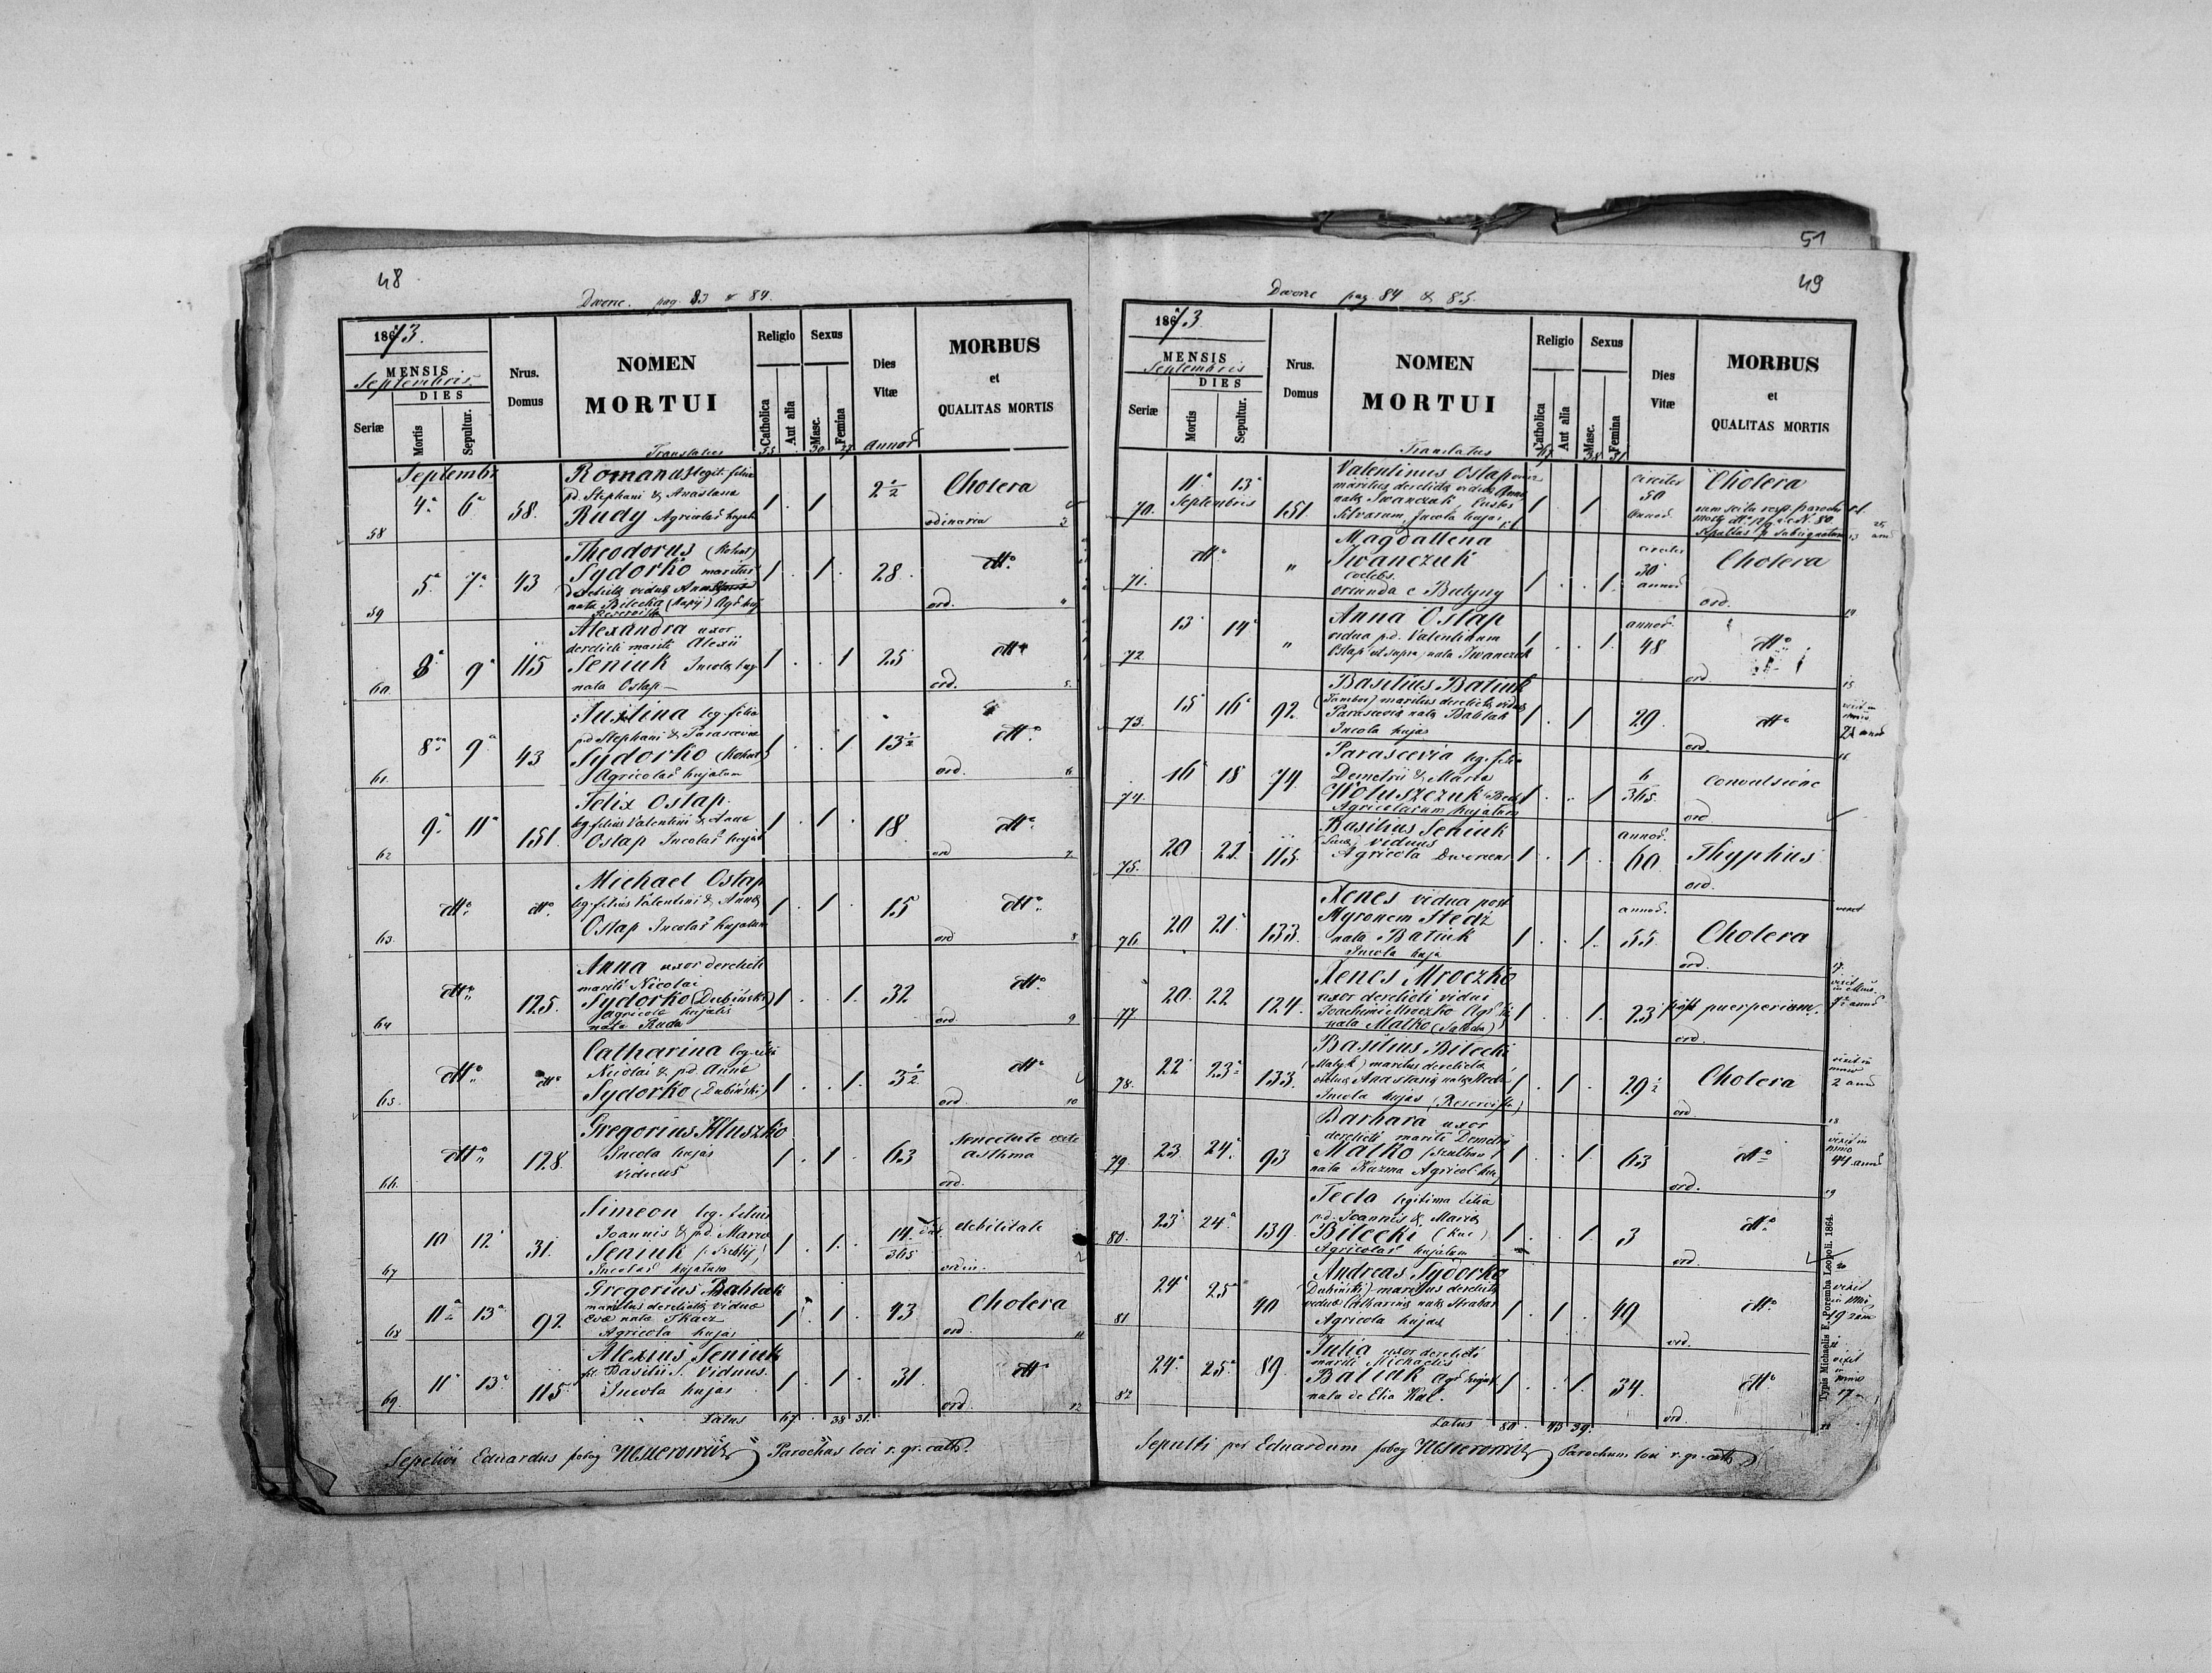 48
Dworce. pag. 83 & 84.
1873.
MENSIS
Septembris
DIES
Seriæ
Mortis
Sepultur.
Nrus.
Domus
NOMEN
MORTUI
Religio
Catholica
Aut alia
Sexus
Masc.
Femina
Dies
Vitæ
annor
MORBUS
et
QUALITAS MORTIS
Translatus 55 30 27
Septembr
58 4ª 6ª 58.
Romanus legit. filius
pd. Stephani & Anastasia
Rudy Agricolar hujat
1 . 1 2½ Cholera
odinaria 3
59 5ª 7ª 43
Theodorus (Kohut)
Sydorko maritus
derelictæ viduæ Anastasia
nata Bilecka Agr huj
Reservista
1 . 1 . 28. dtto.
ord. 4
60. 8ª 9ª 115
Alexandra uxor
derelicti mariti Alexii
Seniuk Incolæ huj
nata Ostap
1 . . 1 25 dtto
ord. 5.
61. 8ª 9ª 43
Justina leg. filia
pd Stephani & Parascevia
Sydorko (Kohut)
Agricolar hujatum
1 . . 1 13½ dtto.
ord. 6
62 9ª 11ª 151
Felix Ostap.
leg. filius Valentini & Anna
Ostap Incolar hujat
1 . 1 . 18 dtto.
ord 7.
63. dtto. dtto.
Michael Ostap
leg. filius Valentini & Annæ
Ostap Incolar hujatum
1 . 1 . 15 dtto.
ord 8
64 dtto. 125.
Anna uxor derelicti
mariti Nicolai
Sydorko (Dubiński)
agricolæ hujatis
nata Ruda
1 . . 1. 32 dtto.
ord. 9
65. dtto. dtto
Catharina leg. filia
Nicolai & pd. Annæ
Sydorko (Dubiński)
1 . . 1. 3½ dtto
ord. 10
66. dtto. 128.
Gregorius Kluszko
Incola hujas
viduus
1 . 1 . 63 senectute
asthma
ord.
67 10 12ª 31.
Simeon leg. filius
Joannis & pd. Maria
Seniuk
Incolar hujatum
1 . 1. . 14/365 debilitate
ordin.
68 11ª 13ª 92.
Gregorius Bahlak
maritus derelictæ viduæ
Evæ nata Tkacz
Agricola hujas
1 . 1 . 43 Cholera
ord. 11
69. 11ª 13ª 115
Alexius Seniuk
fil. Basilii S. Viduus.
Incola hujas
1 . 1 . 31. dtto
ord 12
Latus 67 . 38 31.
Sepelivi Eduardus Parochus loci r. gr. cath.
51
49
Dworce pag. 84 & 85.
1873.
MENSIS
Septembris
DIES
Seriæ
Mortis
Sepultur.
Nrus.
Domus
NOMEN
MORTUI
Religio
Catholica
Aut alia
Sexus
Masc.
Femina
Dies
Vitæ
MORBUS
et
QUALITAS MORTIS
Translatus 67 38 31.
70. 11ª 13ª
Septembris 151.
Valentinus Ostap
maritus derelictæ viduæ Anna
nata Iwanczuk, Custos
Silvarum, Incola hujas
1 . 1 circiter
50
annor. Cholera
cum scitu parochi
sepultus
71. dtto. "
Magdallena
Iwanczuk
coelebs.
oriunda e Butyny
1 . . 1. circiter
30
annor Cholera
ord. 14
72. 13ª 14ª "
Anna Ostap
vidua p.d. Valentinum
Ostap ut supra, nata Iwanczuk
1 . . 1. annor.
48 dtto.
ord 15
73. 15ª 16ª 92.
Basilius Batiuk
maritus derelictæ viduæ
Parascevia nata Bahlak
Incola hujas
1 . 1 29 dtto
ord. 16
74. 16ª 18 74.
Parascevia leg. filia
Demetrii & Maria
Woluszczuk
Agricolarum hujatum
1 . . 1 6/365. Convulsione
ord
75. 20 21. 115.
Basilius Seniuk
viduus
Agricola Dworcens
1 . 1 . annor.
60. Thyphus
ord.
76. 20 21ª 133.
Xenes vidua post
Myronem Stedz
nata Batiuk
Incola huja
1 . . 1. annor.
55. Cholera
ord. 17.
77 20. 22 124.
Xenes Mroczko
uxor derelicti vidui
Joachimi Mroczko Agr
nata Malko
1 . . 1. 23 post puerperium.
ord.
78. 22 23ª 133.
Basilius Bilecki
maritus derelictæ
viduæ Anastasiæ natæ
Incola hujas (Reservista)
1 . 1 . 29½ Cholera
ord. 18
vixit in
mrio
2 ann
79. 23. 24ª 93
Barbara uxor
derelicti mariti Demetri
Malko
nata Kuzma Agricol. huj
1 . . 1 63 dtto
ord. 19
vixit in
mrio
44 ann
80. 23ª 24ª 139
Tecla legitima filia
p.d. Joannis & Maria
Bilecki (Kuc)
Agricolar hujatum
1 . . 1 3 dtto.
ord. 20
81 24ª 25ª 40
Andreas Sydorko
(Dubiński) maritus derelictæ
viduæ Catharinæ natæ
Agricola hujas
1 . 1 . 49 dtto
ord. 21
vixit
in mrio
82 24ª. 25ª 89
Julia uxor derelicti
mariti Michaelis
Batiuk Agr hujat
nata de Elia Kuc.
1 . . 1. 34. dtto.
ord. 22
vixit
in
mrio
17
Latus 80. . 43 39.
Sepulti per Eduardum Parochum loci r. gr. cath.
Typis Michaelis F. Poremba Leopoli. 1864.